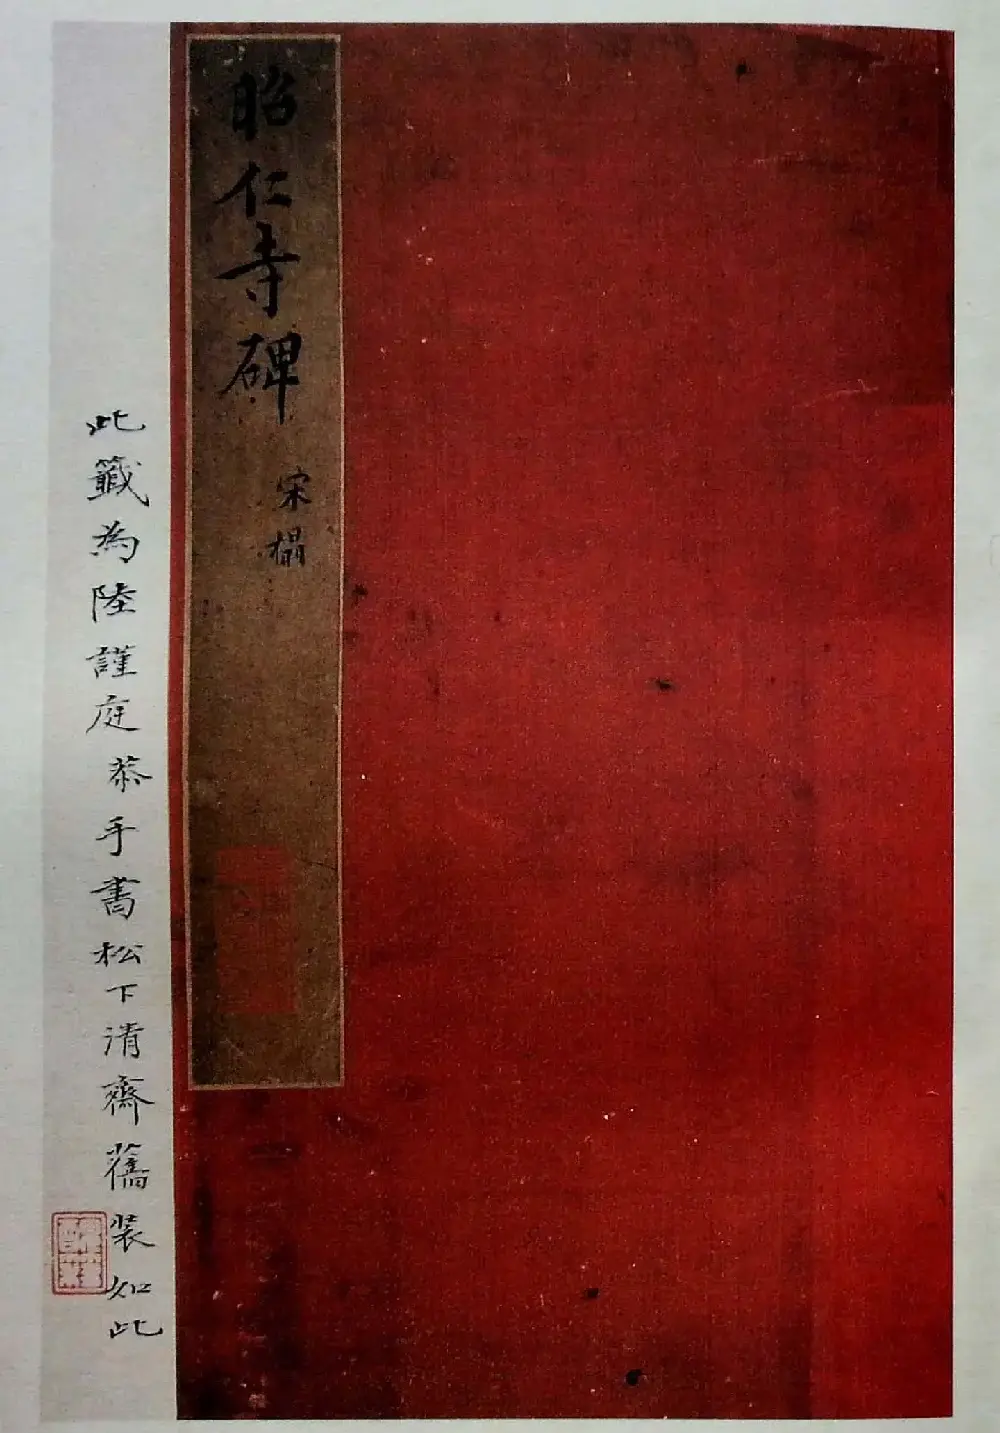 昭仁寺碑
宋榻
此籤為陸謹庭恭手書松下清齋舊装如此